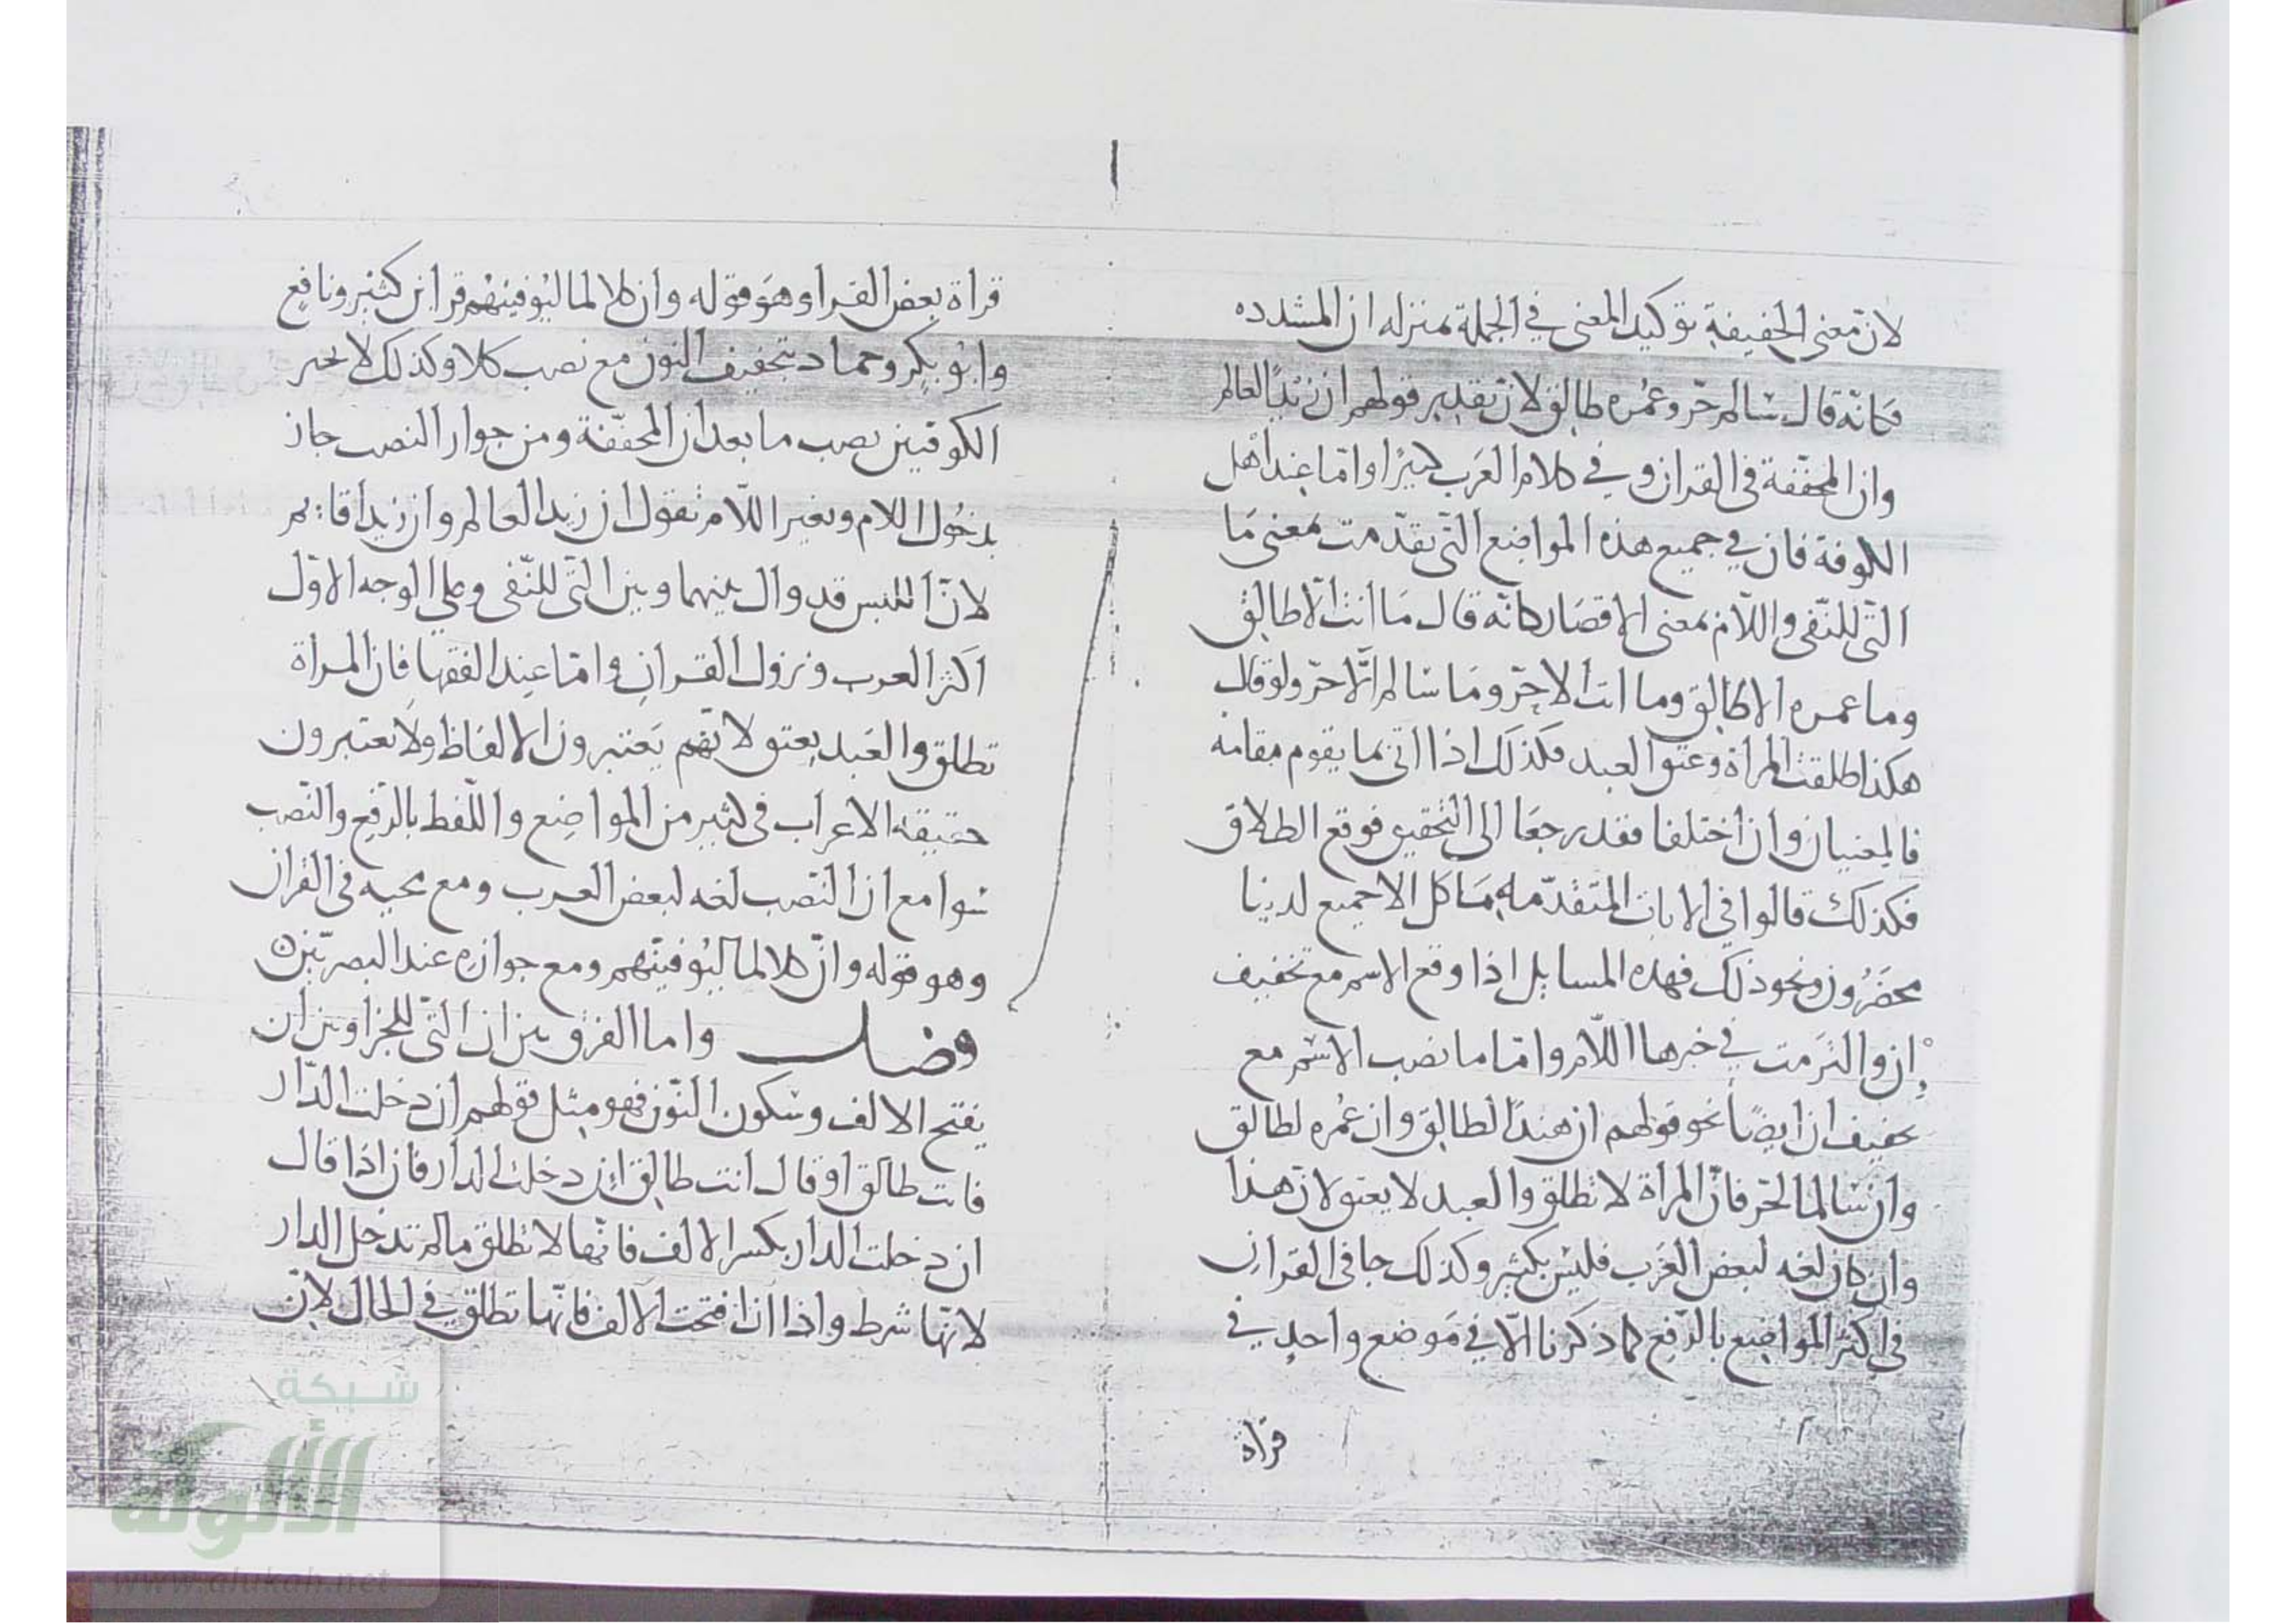 لان معنى الخفيفة توكيد المعنى في الجملة بمنزله ان المشدده
فكانه قال سالم حر وعمره طالق لان تقدير قولهم ان زيدًا لعالم
وان المخففة فى القران وفي كلام العرب كثيرًا واما عند اهل
الكوفة فان في جميع هذه المواضع التي تقدمت بمعنى ما
التى للنفى واللام بمعنى الا فصار كانه قال ما انت الا طالق
وما عمره الا طالق وما انت الا حر وما سالم الا حر ولو قال
هكذا طلقت المراة وعتق العبد فكذلك اذا اتى بما يقوم مقامه
فالمعنيان وان اختلفا فقد رجعا الى التحقيق فوقع الطلاق
فكذلك قالوا فى الايات المتقدمه ما كل الا جميع لدينا
محضرون ونحو ذلك فهذه المسايل اذا وقع الاسم مع تخفيف
إن والتزمت في خبرها اللام واما ما نصب الاسم مع
تخفيف ان ايضًا نحو قولهم ان هندًا لطالق وان عمره لطالق
وان سالما لحر فان المراة لا تطلق والعبد لا يعتق لان هذا
وان كان لغه لبعض العرب فليس بكثير وكذلك جا فى القران
فى اكثر المواضع بالرفع كما ذكرنا الا في موضع واحد في
قراة
قراة بعض القرا وهو قوله وان كلا لما ليوفينهم قرا ابن كثير ونافع
وابو بكر وحماد بتخفيف النون مع نصب كلا وكذلك لا يجيز
الكوفيين نصب ما بعد ان المخففة ومن جواز النصب جاز
بدخول اللام وبغير اللام تقول ان زيدا لعالم وان زيدا قايم
لان اللبس قد زال بينهما وبين التى للنفى وعلى الوجه الاول
اكثر العرب ونزول القران واما عند الفقها فان المراة
تطلق والعبد يعتق لانهم يعتبرون الالفاظ ولا يعتبرون
حقيقة الاعراب فى كثير من المواضع واللفظ بالرفع والنصب
سوا مع ان النصب لغه لبعض العرب ومع مجيه فى القران
وهو قوله وان كلا لما ليوفينهم ومع جوازه عند البصريين
فصل واما الفرق بين ان التى للجزا وبين ان
بفتح الالف وسكون النون فهو مثل قولهم ان دخلت الدار
فانت طالق او قال انت طالق ان دخلت الدار فان اذا قال
ان دخلت الدار بكسر الالف فانها لا تطلق ما لم تدخل الدار
لانها شرط واذا فتحت الالف فانها تطلق في الحال لان
شبكة
الألوكة
www.alukah.net